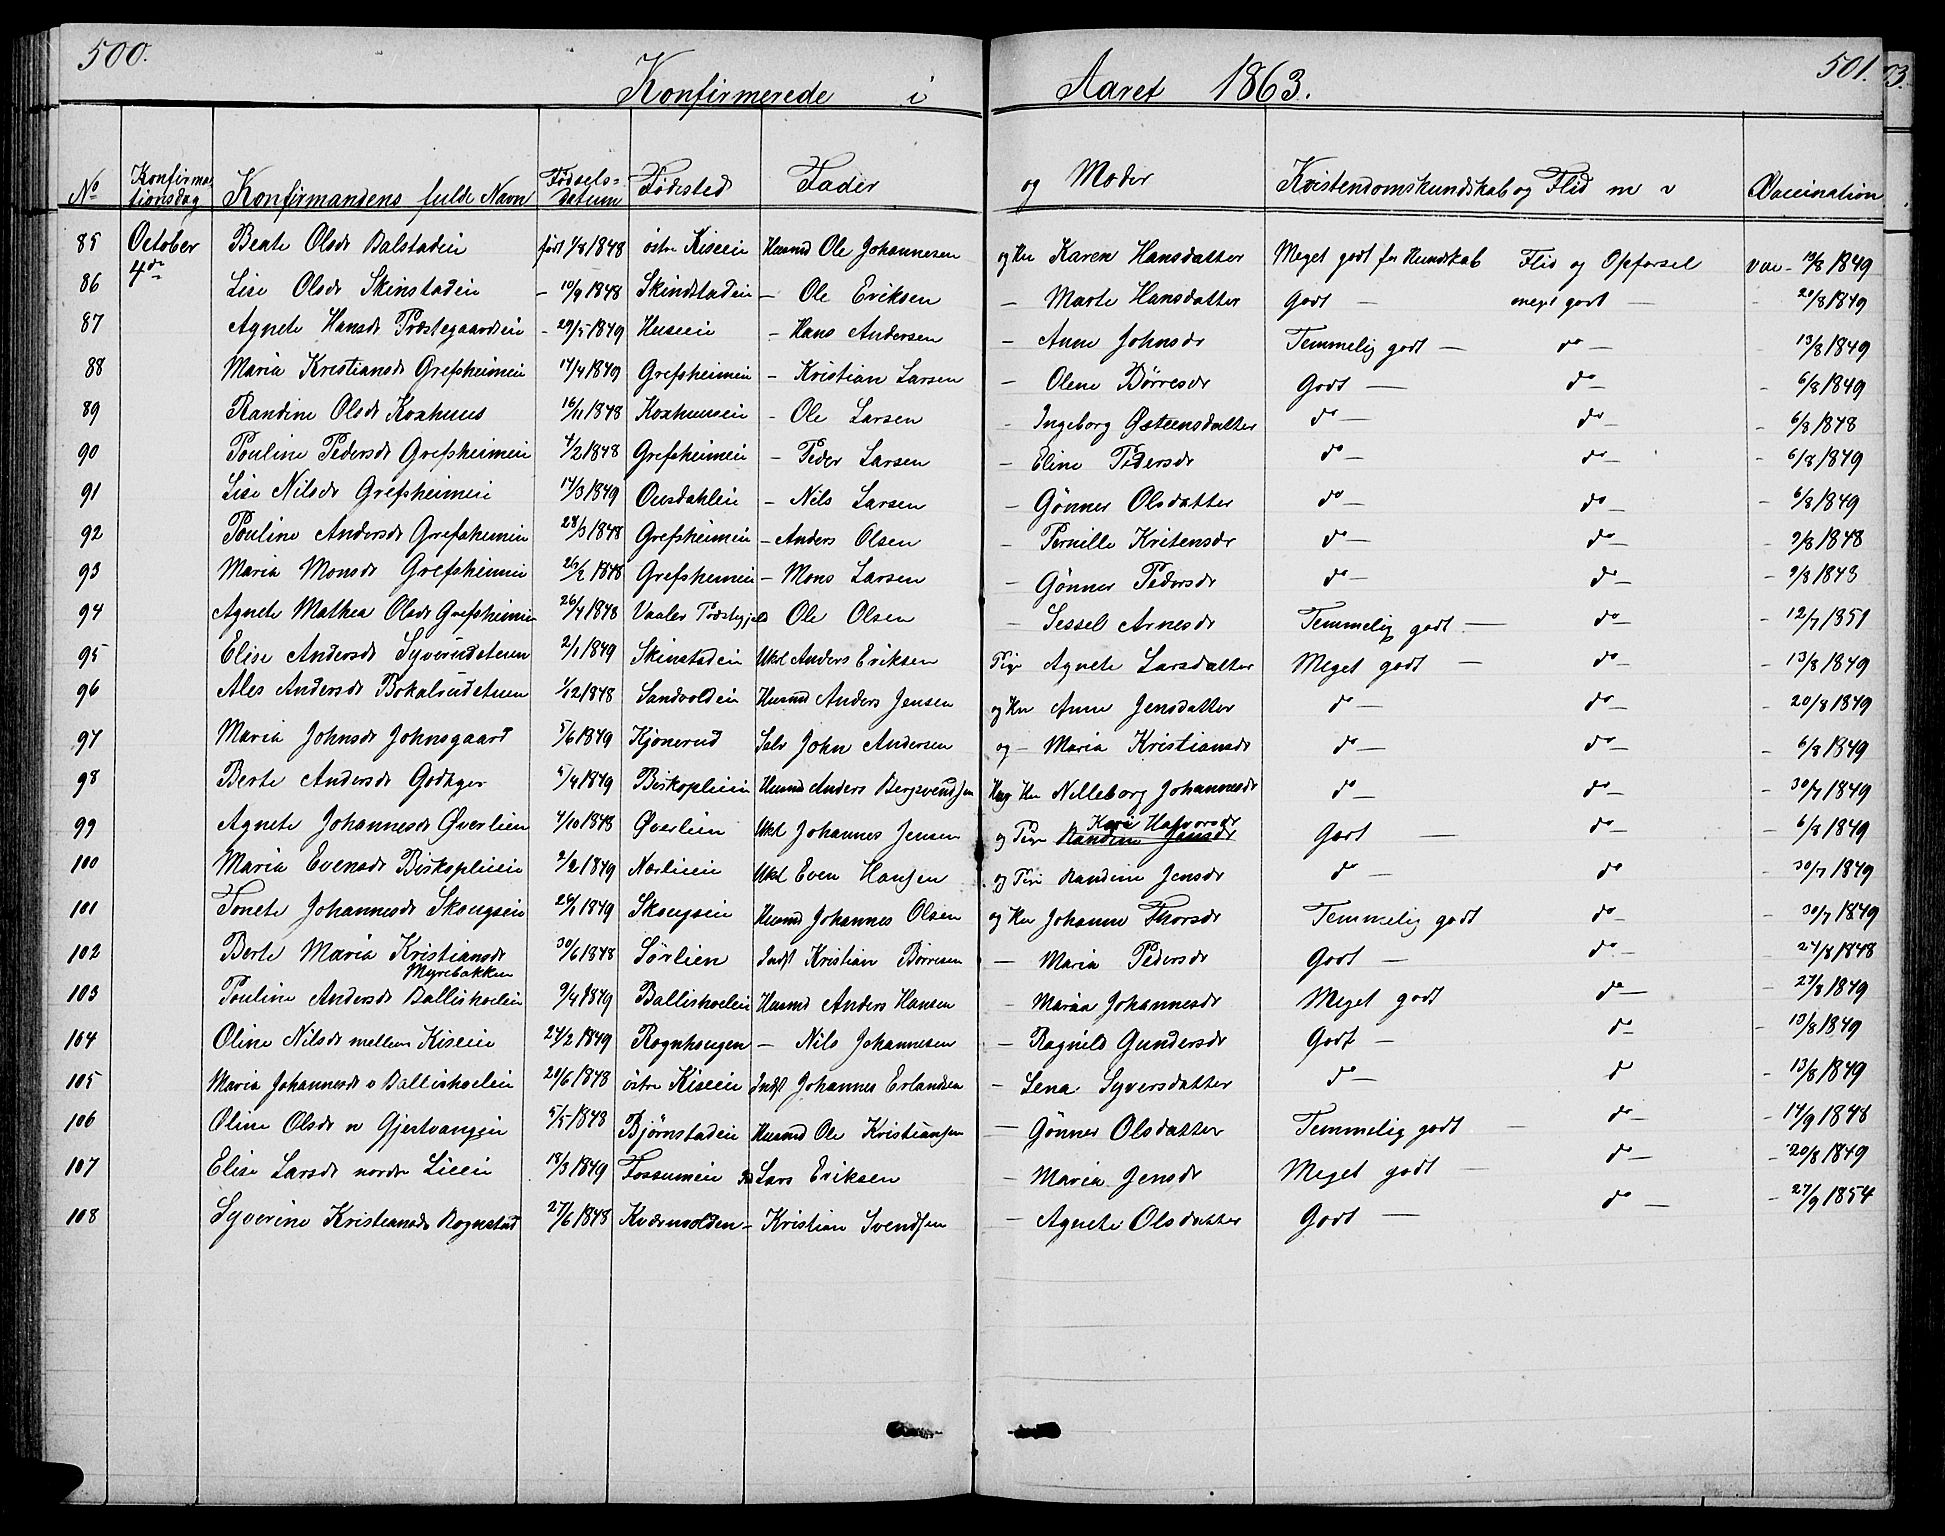 500. 501.
Konfirmerede i Aaret 1863.
No Konfirmationsdag Konfirmandens fulde Navn Fødselsdatum Fødested Fader og Moder Kristendomskundskab og Flid m v Vaccination
85 October 4de Beate Olsdr Balstadeie født 1/8 1848 østre Kiseeie Husmd Ole Johannesen og Kn Karen Hansdatter Meget godt for Kundskab Flid og Opførsel Vac - 13/8 1849
86 Lise Olsdr Skinstadeie - 10/9 1848 Skindstadeie - Ole Eriksen - Marte Hansdatter Godt - meget godt - - 20/8 1849
87 Agnete Hansdr Præstegaardseie - 29/5 1849 Huseeie - Hans Andersen - Anne Johnsdr Temmelig godt - do - - 13/8 1849
88 Maria Kristiansdr Grefsheimeie 14/4 1849 Grefsheimeie - Kristian Larsen - Olene Børresdr Godt - do - - 6/8 1849
89 Randine Olsdr Koxhuus 16/11 1848 Koxhuuseie - Ole Larsen - Ingeborg Østeensdatter do - do - - 6/8 1848
90 Pouline Pedersdr Grefsheimeie 4/2 1848 Grefsheimeie - Peder Larsen - Eline Pedersdr do - do - - 6/8 1849
91 Lise Nilsdr Grefsheimeie 14/3 1849 Ousdahleie - Nils Larsen - Gønner Olsdatter do - do - - 6/8 1849
92 Pouline Andersdr Grefsheimeie 28/3 1848 Grefsheimeie - Anders Olsen - Pernille Kritensdr do - do - - 9/8 1848
93 Maria Monsdr Grefsheimeie 26/2 1848 Grefsheimeie - Mons Larsen - Gønner Pedersdr do - do - - 9/8 1848
94 Agnete Mathea Olsdr Grefsheimeie 26/4 1848 Vaaler Præstegjeld Ole Olsen - Sessel Arnesdr Temmelig godt - do - - 12/7 1851
95 Elise Andersdr Syverudstuen 2/1 1849 Skinstadeie Ukl Anders Eriksen Pige Agnete Larsdatter Meget godt - do - - 13/8 1849
96 Ales Andersdr Bokalrudstuen 1/12 1848 Sandvoldeie Husmd Anders Jensen og Kn Anne Jensdatter do - do - - 20/8 1849
97 Maria Johnsdr Johnsgaard 5/6 1849 Kjønerud Selv John Andersen og - Maria Kristiansdr do - do - - 6/8 1849
98 Berte Andersdr Godager 5/4 1849 Biskoplieie Husmd Anders Bergsvendsen Kn Nilleborg Johannesdr do - do - - 30/7 1849
99 Agnete Johannesdr Øverlien 4/10 1848 Øverlien Ukl Johannes Jensen og Pige Randine Jensdr Kari Halvorsdr Godt - do - - 6/8 1849
100 Maria Evensdr Biskoplieie 2/2 1849 Nerlieie Ukl Even Hansen og Pige Randine Jensdr do - do - 30/7 1849
101 Tonete Johannesdr Skougseie 24/1 1849 Skougseie Husmd Johannes Olsen og Kn Johanne Thorsdr Temmelig godt do - - 30/7 1849
102 Berte Maria Kristiansdr Myrebakken 30/6 1848 Sørlien Indst Kristian Børresen - Maria Pedersdr Godt - do - - 24/8 1848
103 Pouline Andersdr Ballishoeleie 9/4 1849 Ballishoeleie Husmd Anders Hansen - Maria Johannesdr Meget godt do - - 27/8 1849
104 Oline Nilsdr mellem Kiseeie 24/2 1849 Rognhougen - Nils Johannesen - Ragnild Gundersdr Godt - do - - 13/8 1849
105 Maria Johannesdr ø Ballishoeleie 20/6 1848 østre Kiseeie Indst Johannes Erlandsen - Lena Syversdatter do - do - 13/8 1849
106 Oline Olsdr n Gjertvangeie 5/5 1848 Bjørnstadeie Husmd Ole Kristiansen - Gønner Olsdatter Temmelig godt - do - - 14/9 1848
107 Elise Larsdr nordre Lieeie 18/3 1849 Fossumeie Lars Eriksen - Maria Jensdr Meget godt - do - - 20/8 1849
108 Syverine Kristiansdr Rognstad 27/6 1848 Kværnvolden - Kristian Svendsen - Agnete Olsdatter Godt - do - - 27/9 1854